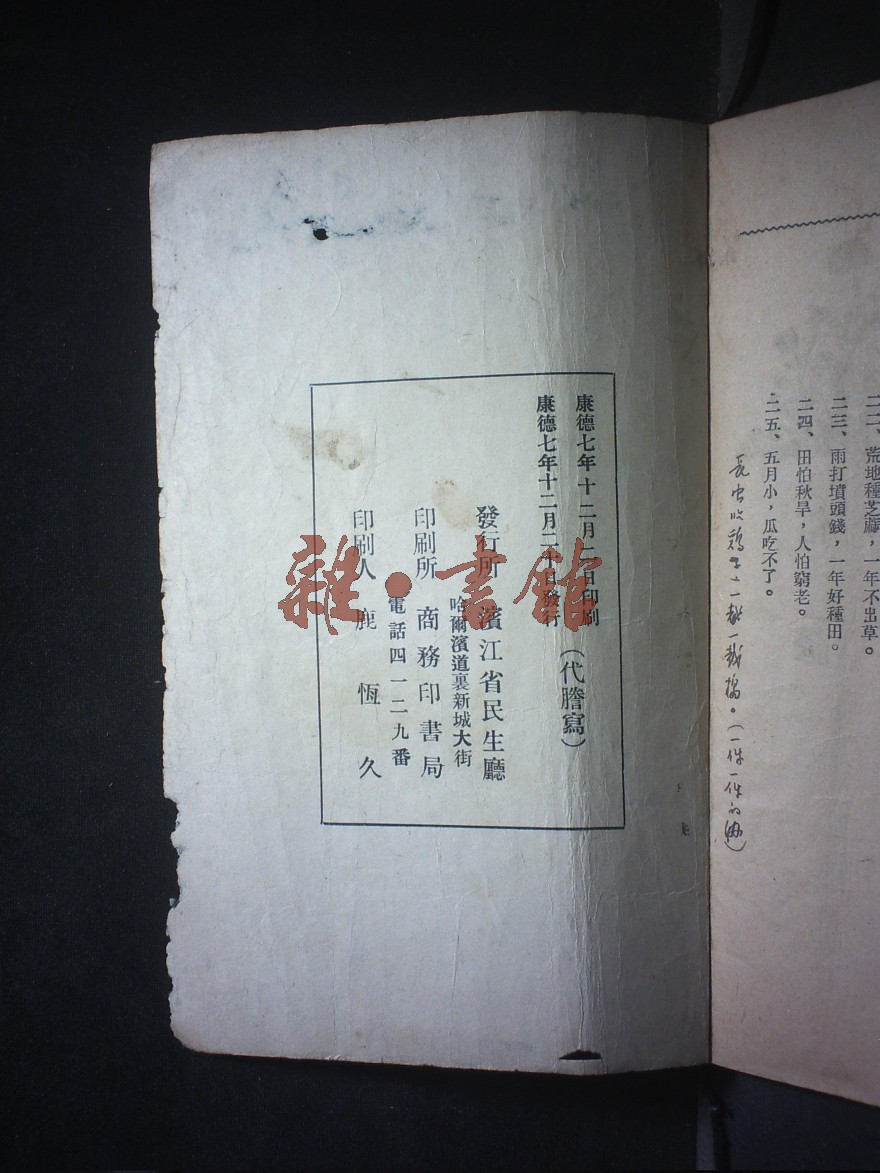 二二、荒地種芝蔴，一年不出草。
二三、雨打墳頭錢，一年好種田。
二四、田怕秋旱，人怕窮老。
二五、五月小，瓜吃不了。
康德七年十二月二日印刷
康德七年十二月二十日發行
（代謄寫）
發行所 濱江省民生廳
哈爾濱道裏新城大街
印刷所 商務印書局
電話四一二九番
印刷人 鹿恆久
雜·書館